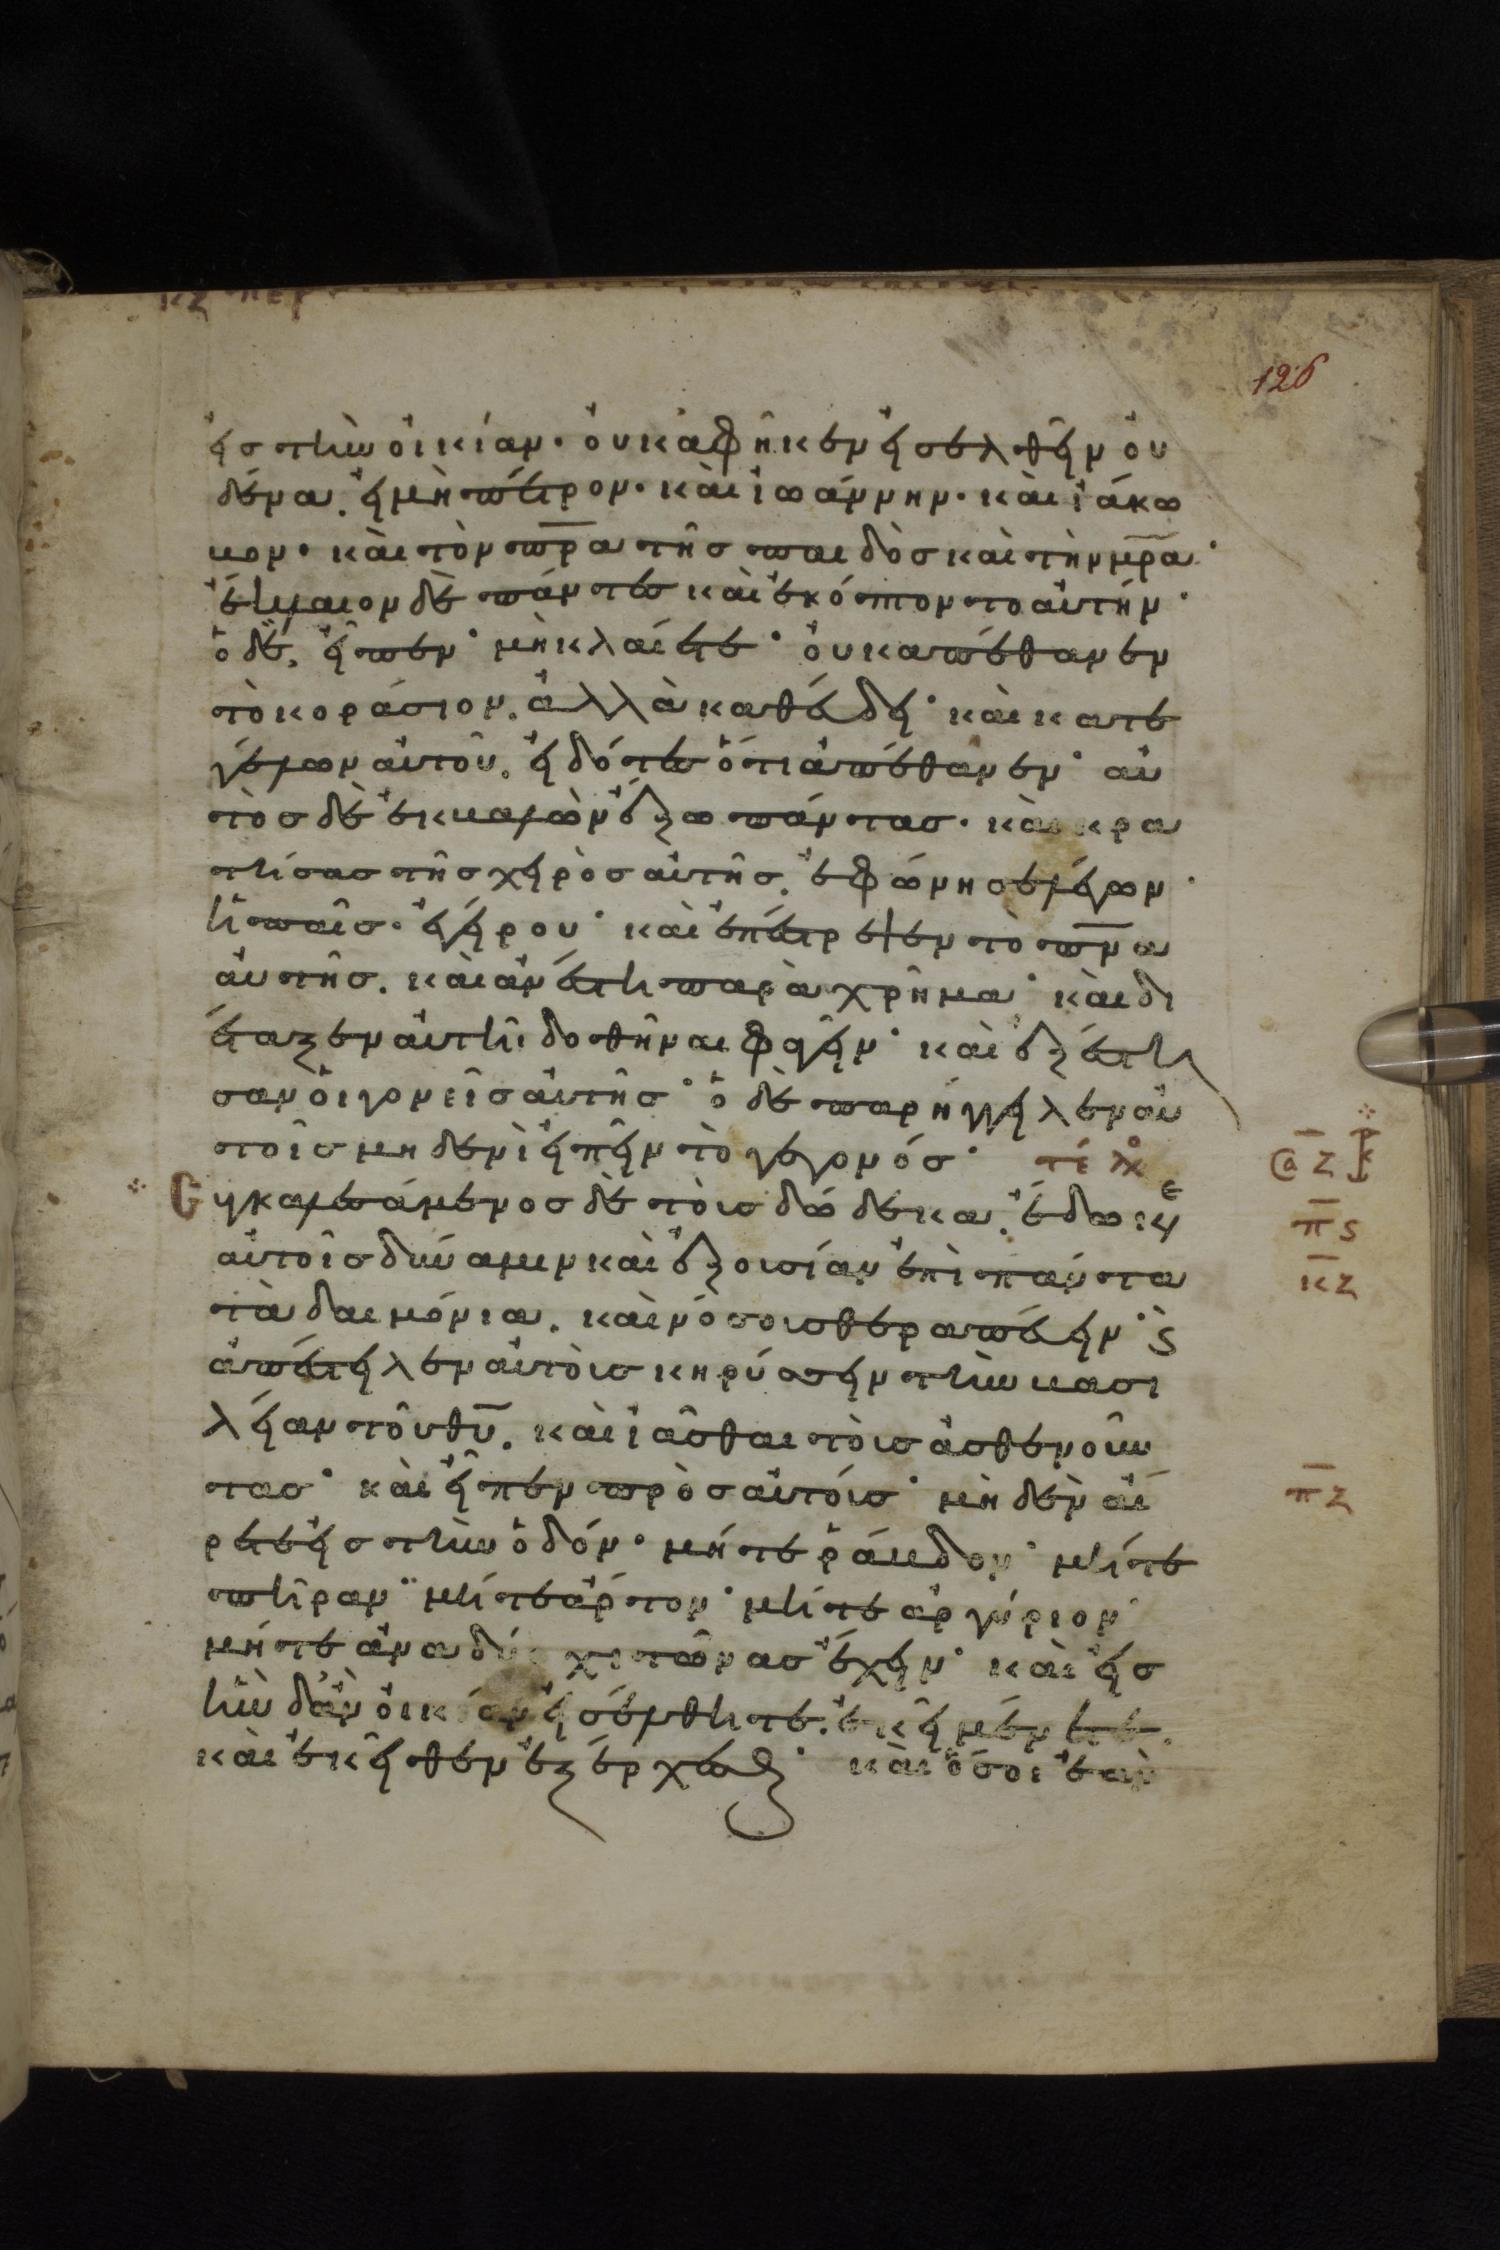 126
εἰς τὴν οἰκίαν· οὐκ ἀφῆκεν εἰσελθεῖν οὐ
δένα. εἰ μὴ πέτρον· καὶ ἰωάννην· καὶ ἰάκω
βον· καὶ τὸν π̅ρ̅α τῆς παιδὸς καὶ τὴν μ̅ρ̅α·
ἔκλαιον δὲ πάντες καὶ ἐκόπτοντο αὐτήν·
ὁ δὲ, εἶπεν· μὴ κλαίετε· οὐκ ἀπέθανεν
τὸ κοράσιον. ἀλλὰ καθεύδει· καὶ κατε
γέλων αὐτοῦ. εἰδότες ὅτι ἀπέθανεν· αὐ
τὸς δὲ ἐκβαλὼν ἔξω πάντας· καὶ κρα
τήσας τῆς χειρὸς αὐτῆς. ἐφώνησε λέγων·
ἡ παῖς· ἐγείρου· καὶ ἐπέστρεψεν τὸ π̅ν̅α
αὐτῆς. καὶ ἀνέστη παραχρῆμα· καὶ δι
έταξεν αὐτῆ δοθῆναι φαγεῖν· καὶ ἐξέστη
σαν οἱ γονεῖς αὐτῆς· ὁ δὲ παρήγγειλεν αὐ
τοῖς μηδενὶ εἰπεῖν τὸ γεγονός· τέλο
Συγκαλεσάμενος δὲ τοὺς δώδεκα. ἔδωκε
αὐτοῖς δύναμιν καὶ ἐξουσίαν ἐπὶ πάντα
τὰ δαιμόνια. καὶ νόσους θεραπεύειν· ϛ
ἀπέστειλεν αὐτοὺς κηρύσσειν τὴν βασι
λείαν τοῦ θ̅υ̅. καὶ ἰᾶσθαι τοὺς ἀσθενοῦν
τας· καὶ εἶπεν πρὸς αὐτούς· μηδὲν αἴ
ρετε εἰς τὴν ὁδόν· μήτε ῥάβδον· μήτε
πῆραν· μήτε ἄρτον· μήτε ἀργύριον·
μήτε ἀνὰ δύο χιτῶνας ἔχειν· καὶ εἰς
ἣν δ' ἂν οἰκίαν εἰσέλθητε. ἐκεῖ μένετε.
καὶ ἐκεῖθεν ἐξέρχεσθε· καὶ ὅσοι ἐὰν
π̅ϛ
κ̅ζ
π̅ζ